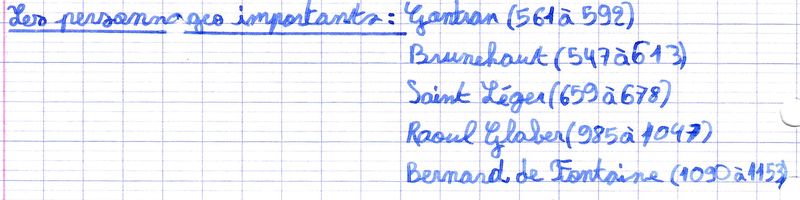 Les personnages importants : Gontran (561 à 592)
Brunehaut (547 à 613)
Saint Léger (659 à 678)
Raoul Glaber (985 à 1047)
Bernard de Fontaine (1090 à 1153)